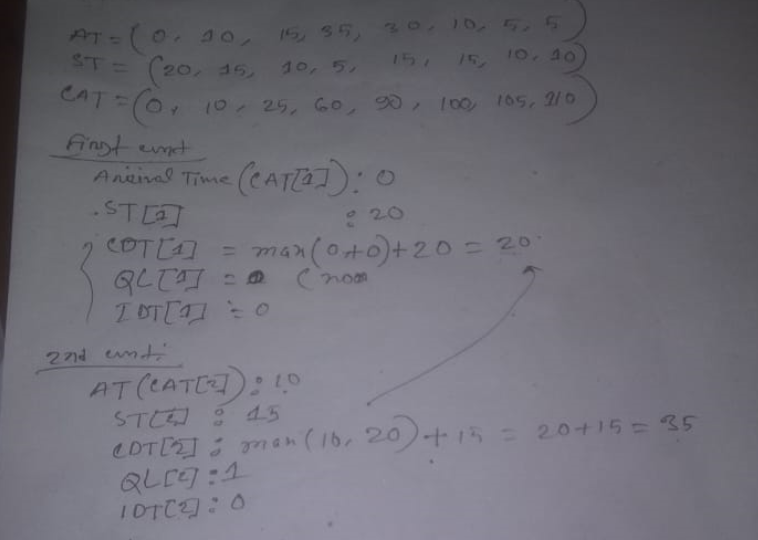 AT = (0, 10, 15, 35, 30, 10, 5, 5)
ST = (20, 15, 10, 5, 15, 15, 10, 10)
CAT = (0, 10, 25, 60, 90, 100, 105, 110)
First event
Arrival Time (CAT[1]) : 0
ST[1] : 20
CDT[1] = max(0+0)+20 = 20
QL[1] = 0 (non
IDT[1] = 0
2nd event:
AT (CAT[2]) : 10
ST[2] : 15
CDT[2] : max(10, 20) + 15 = 20+15 = 35
QL[2] : 1
IDT[2] : 0